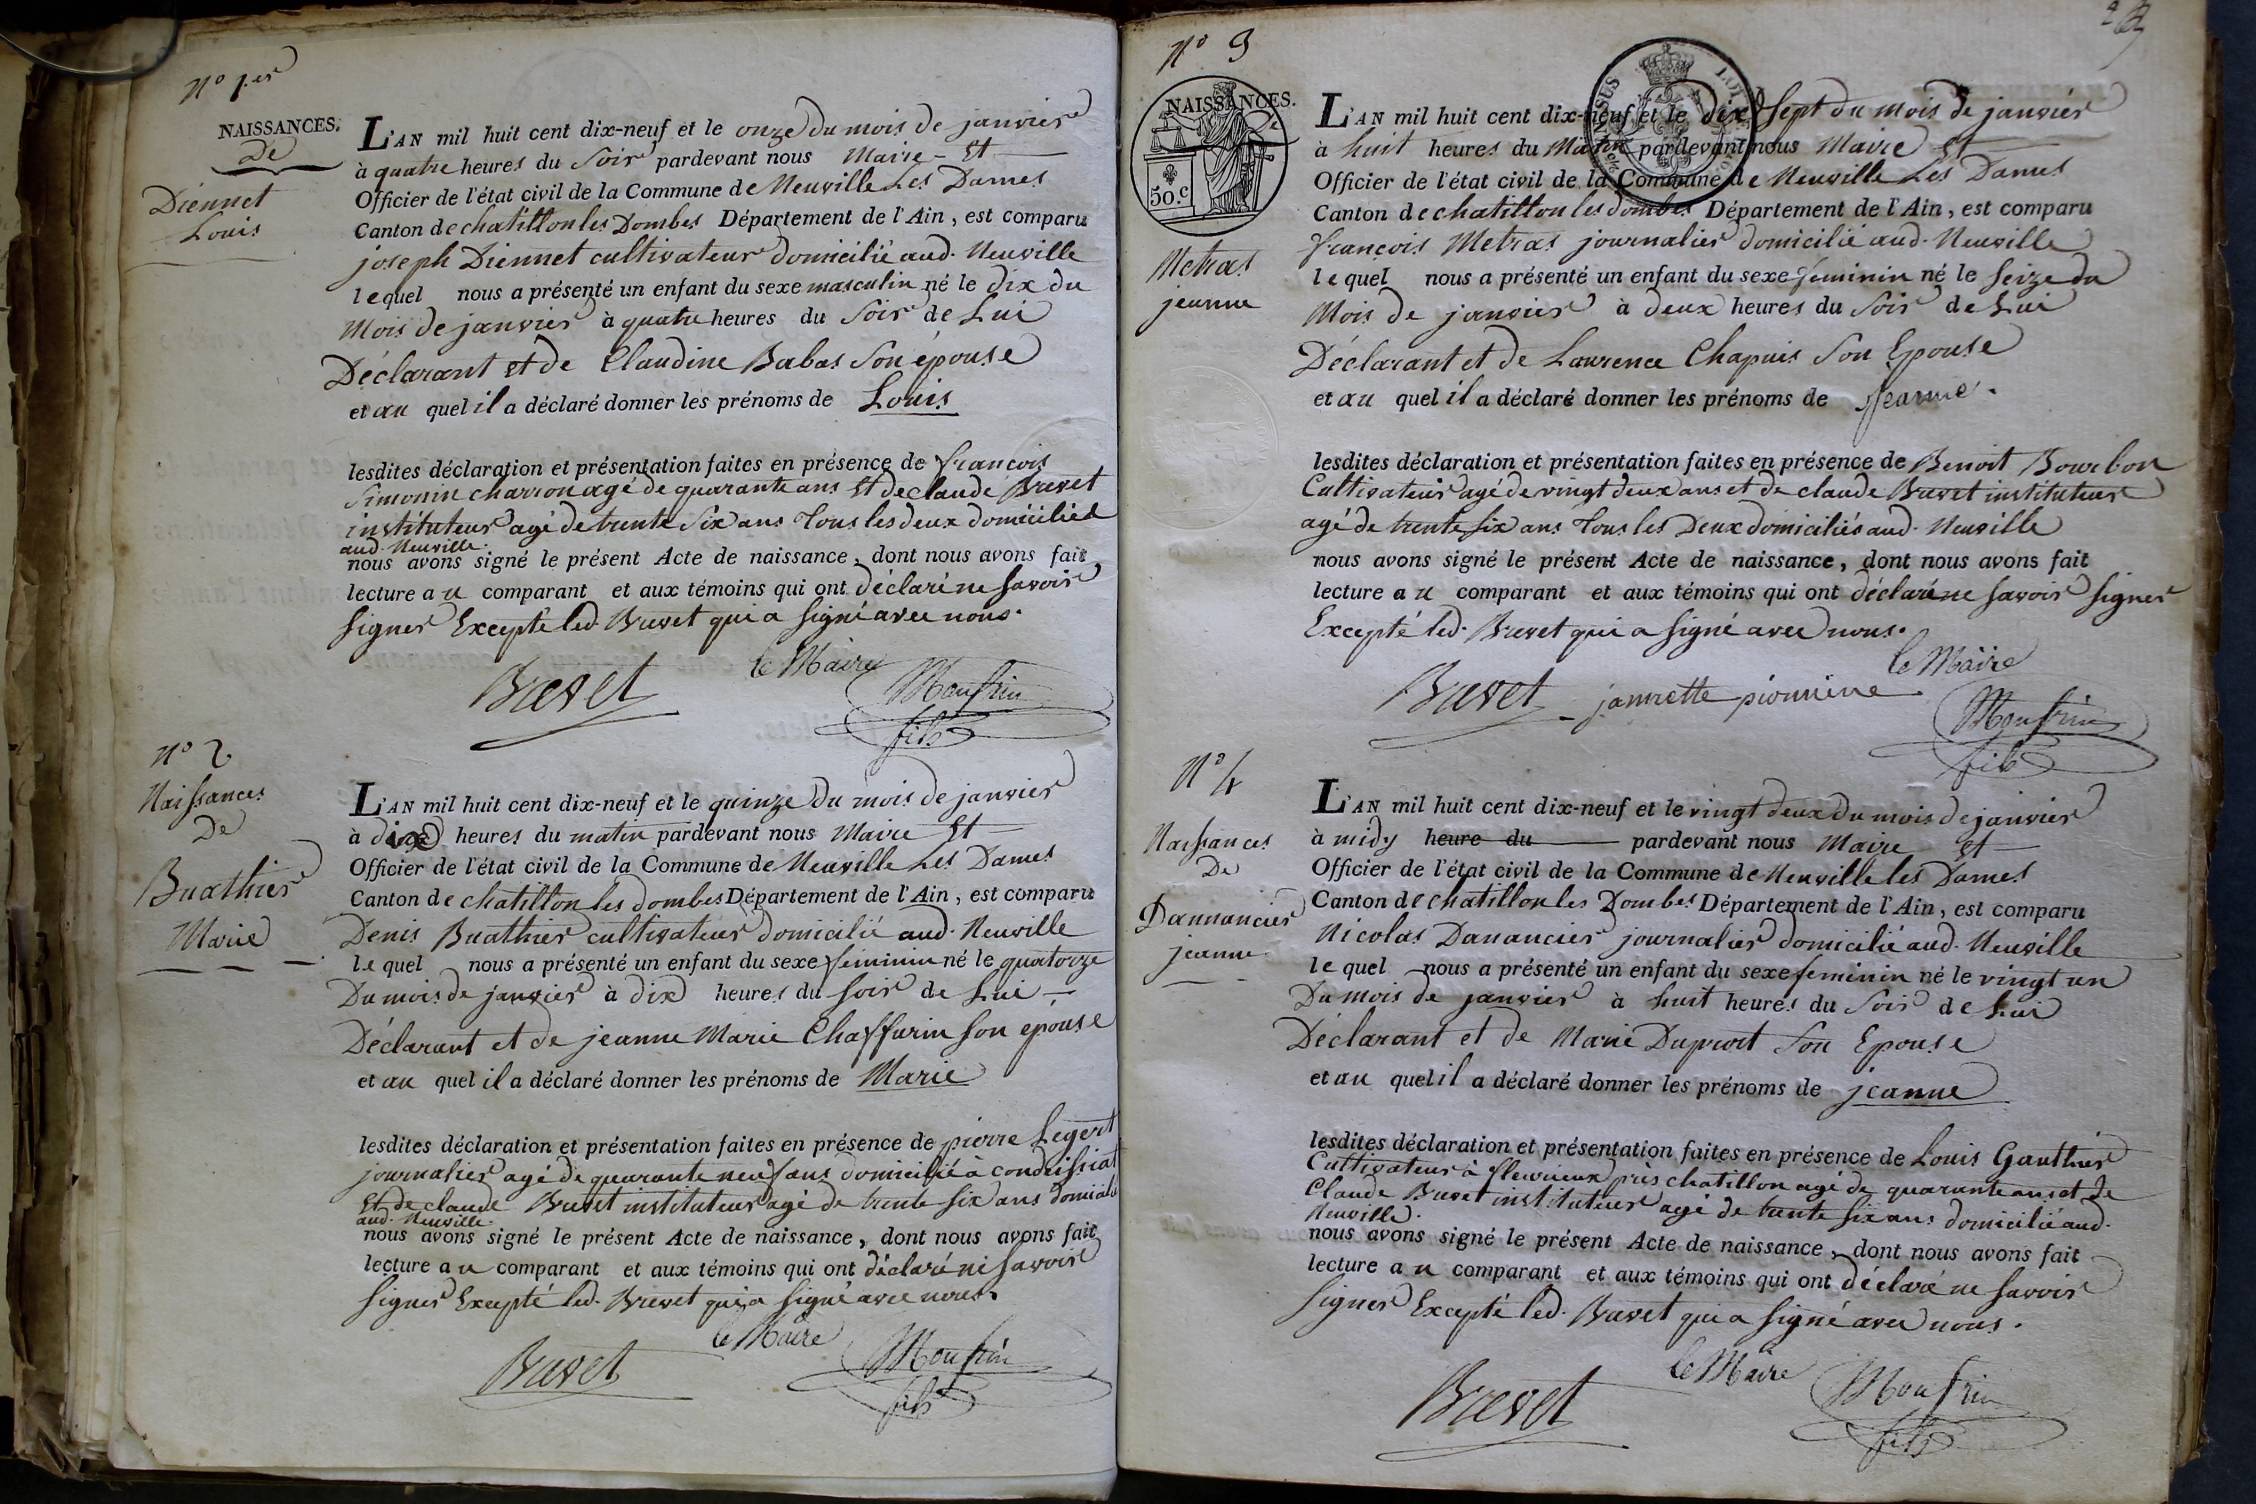 N° 1.er
NAISSANCES.
de
Diennet
Louis
L'AN mil huit cent dix-neuf et le onze du mois de janvier
à quatre heures du Soir pardevant nous Maire Et
Officier de l'état civil de la Commune de Neuville Les Dames
Canton de chatillon les Dombes Département de l'Ain, est comparu
joseph Diennet cultivateur domicilié aud. Neuville
lequel nous a présenté un enfant du sexe masculin né le dix du
Mois de janvier à quatre heures du Soir de Lui
Déclarant et de Claudine Babas Son épouse
et au quel il a déclaré donner les prénoms de Louis
lesdites déclaration et présentation faites en présence de françois
Simonin charron agé de quarante ans Et de claude Brevet
instituteur agé de trente Six ans Tous les deux domiciliés
aud. Neuville.
nous avons signé le présent Acte de naissance, dont nous avons fait
lecture au comparant et aux témoins qui ont déclaré ne Savoir
Signer Excepté led. Brevet qui a Signé avec nous.
le Maire
Brevet Monfrin
fils
N° 2
Naissances
De
Buathier
Marie
L'AN mil huit cent dix-neuf et le quinze du mois de janvier
à dix heures du matin pardevant nous Maire Et
Officier de l'état civil de la Commune de Neuville Les Dames
Canton de chatillon les dombes Département de l'Ain, est comparu
Denis Buathier cultivateur domicilié aud. Neuville
lequel nous a présenté un enfant du sexe feminin né le quatorze
Du mois de janvier à dix heures du Soir de Lui
Déclarant et de jeanne Marie Chaffurin Son epouse
et au quel il a déclaré donner les prénoms de Marie
lesdites déclaration et présentation faites en présence de pierre Legert
journalier agé de quarante neuf ans domicilié à condeissiat
Et de claude Brevet instituteur agé de trente Six ans domicilié
aud. Neuville.
nous avons signé le présent Acte de naissance, dont nous avons fait
lecture au comparant et aux témoins qui ont déclaré ne Savoir
Signer Excepté led. Brevet qui a Signé avec nous.
le Maire
Brevet Monfrin
fils
N° 3
NAISSANCES.
50.c
Metras
jeanne
L'AN mil huit cent dix-neuf et le dix Sept du mois de janvier
à huit heures du Matin pardevant nous Maire Et
Officier de l'état civil de la Commune de Neuville Les Dames
Canton de chatillon les dombes Département de l'Ain, est comparu
françois Metras journalier domicilié aud. Neuville
lequel nous a présenté un enfant du sexe feminin né le Seize du
Mois de janvier à deux heures du Soir de Lui
Déclarant et de Laurence Chapuis Son Epouse
et au quel il a déclaré donner les prénoms de Jeanne.
lesdites déclaration et présentation faites en présence de Benoit Bourbon
Cultivateur agé de vingt deux ans et de claude Brevet instituteur
agé de trente Six ans Tous les Deux domiciliés aud. Neuville
nous avons signé le présent Acte de naissance, dont nous avons fait
lecture au comparant et aux témoins qui ont déclaré ne Savoir Signer
Excepté led. Brevet qui a Signé avec nous.
le Maire
Brevet jannette pionnine Monfrin
fils
N° 4
Naissances
De
Dannancier
jeanne
L'AN mil huit cent dix-neuf et le vingt deux du mois de janvier
à midy heure du pardevant nous Maire Et
Officier de l'état civil de la Commune de Neuville les Dames
Canton de chatillon les Dombes Département de l'Ain, est comparu
Nicolas Danancier journalier domicilié aud. Neuville
lequel nous a présenté un enfant du sexe feminin né le vingt un
Du mois de janvier à huit heures du Soir de Lui
Déclarant et de Marie Duprost Son Epouse
et au quel il a déclaré donner les prénoms de jeanne
lesdites déclaration et présentation faites en présence de Louis Gauthier
Cultivateur à fleurieux près chatillon agé de quarante ans et de
Claude Brevet instituteur agé de trente Six ans domicilié aud.
Neuville.
nous avons signé le présent Acte de naissance, dont nous avons fait
lecture au comparant et aux témoins qui ont déclaré ne Savoir
Signer Excepté led. Brevet qui a Signé avec nous.
le Maire
Brevet Monfrin
fils